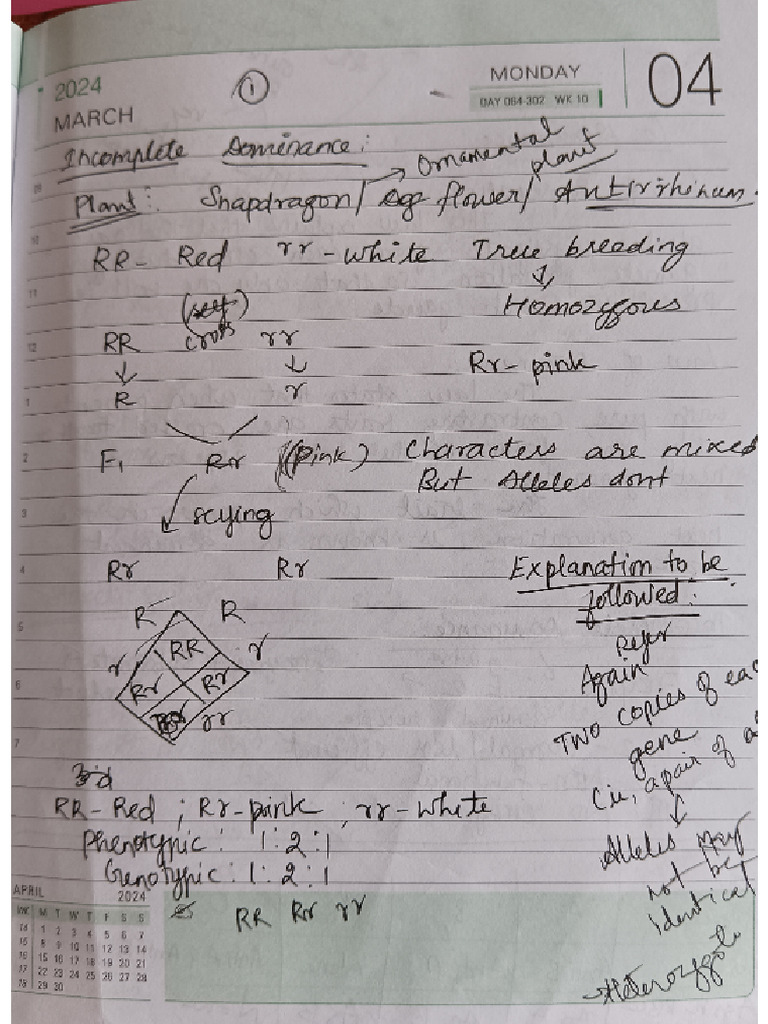 2024
MARCH
①
MONDAY
DAY 064-302 WK 10
04
Incomplete Dominance:
Ornamental plant
Plant: Snapdragon/ flower/ Antirrhinum.
RR- Red rr-white True breeding
↓
Homozygous
(self)
RR cross rr
↓ ↓
Rr- pink
R r
F1 Rr (Pink) Characters are mixed
But Alleles dont
selfing
Rr Rr
Explanation to be
followed:
R R
r r
RR
Rr Rr
rr
Refer
Again
Two copies of each
gene
(ie, a pair of
↓
Alleles may
not be
identical
→Heterozygote
RR-Red ; Rr-pink ; rr-white
Phenotypic: 1:2:1
Genotypic: 1:2:1
RR Rr rr
APRIL 2024
WK M T W T F S S
14 1 2 3 4 5 6 7
15 8 9 10 11 12 13 14
16 15 16 17 18 19 20 21
17 22 23 24 25 26 27 28
18 29 30
9
10
11
12
1
2
3
4
5
6
7